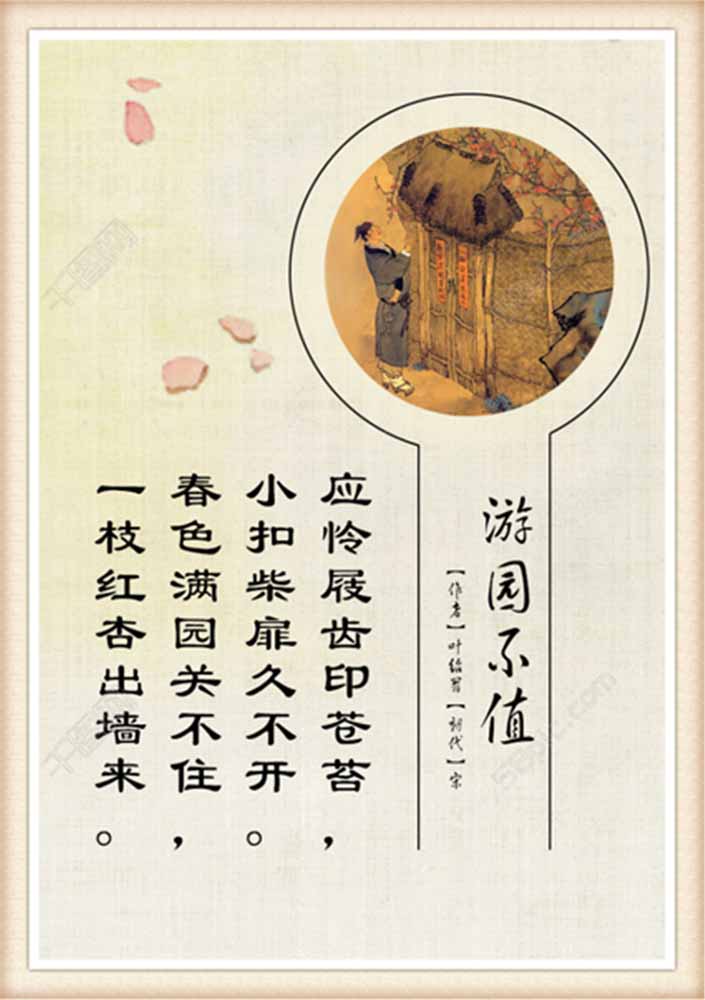 游园不值
【作者】叶绍翁【朝代】宋
应怜屐齿印苍苔，
小扣柴扉久不开。
春色满园关不住，
一枝红杏出墙来。
千图网
千图网
58pic.com